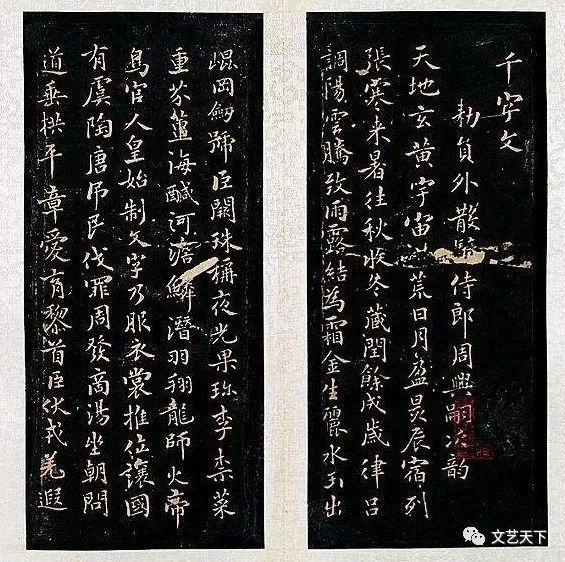 千字文
勅員外散騎侍郎周興嗣次韵
天地玄黄宇宙洪荒日月盈昃辰宿列
張寒来暑往秋收冬藏閏餘成歲律吕
調陽雲騰致雨露結為霜金生麗水玉出
崐岡劔號巨闕珠稱夜光果珎李柰菜
重芥薑海醎河澹鱗潛羽翔龍師火帝
鳥官人皇始制文字乃服衣裳推位讓國
有虞陶唐吊民伐罪周發商湯坐朝問
道垂拱平章愛育黎首臣伏戎羌遐
文艺天下